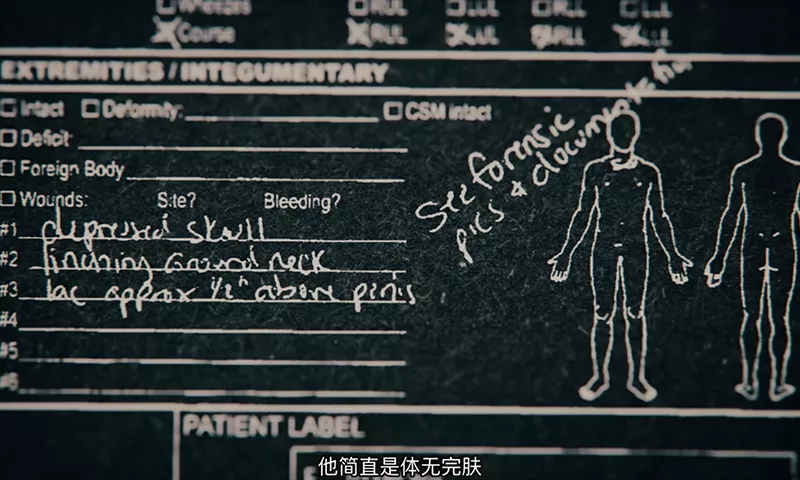 Wheezes RUL LUL RLL LLL
Course RUL LUL RLL LLL
EXTREMITIES / INTEGUMENTARY
Intact Deformity: CSM intact
Deficit:
Foreign Body
Wounds: Site? Bleeding?
#1 depressed skull
#2 linching around neck
#3 lac approx 1/2" above penis
#4
#5
#6
See forensic
pics & documents for
PATIENT LABEL
他简直是体无完肤